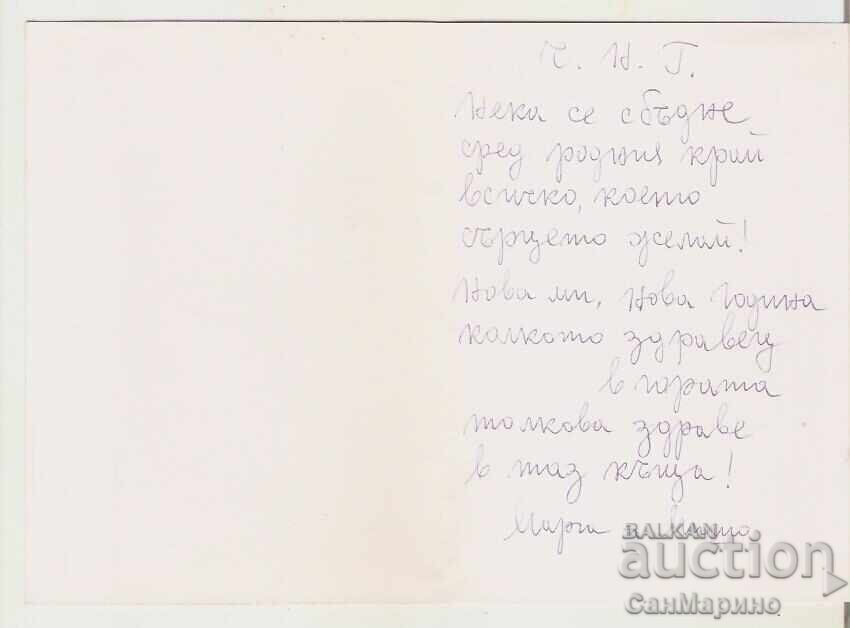 Ч. Н. Г.
Нека се сбъдне
сред родния край
всичко, което
сърцето желай!
Нова ми, Нова година
колкото здравец
в гората
толкова здраве
в таз къща!
Марга
BALKAN
auction
СанМарино